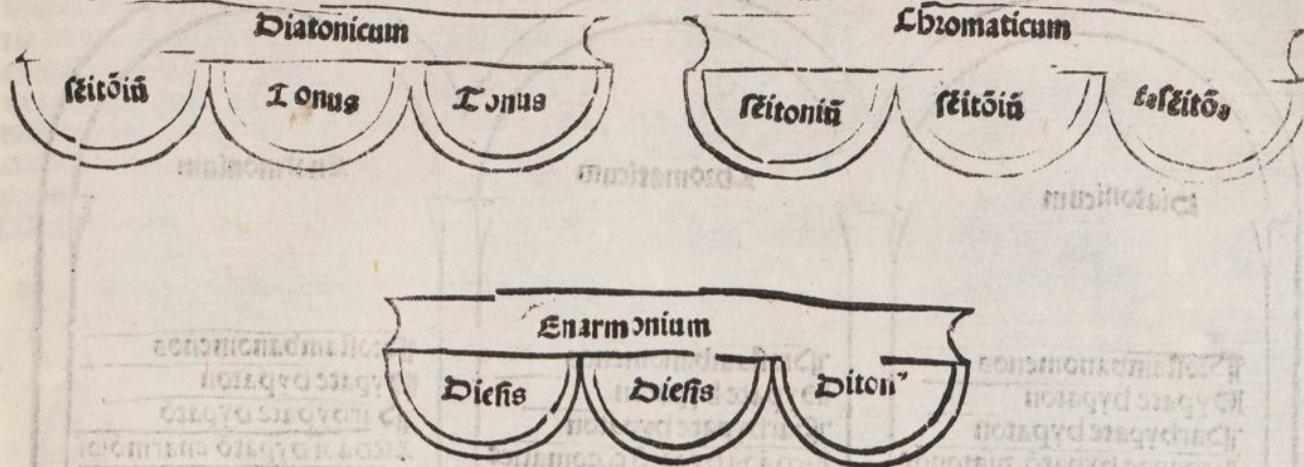 Diatonicum
sēitōiū Tonus Tonus
Chromaticum
sēitoniū sēitōiū
Enarmonium
Diesis Diesis Diton⁹